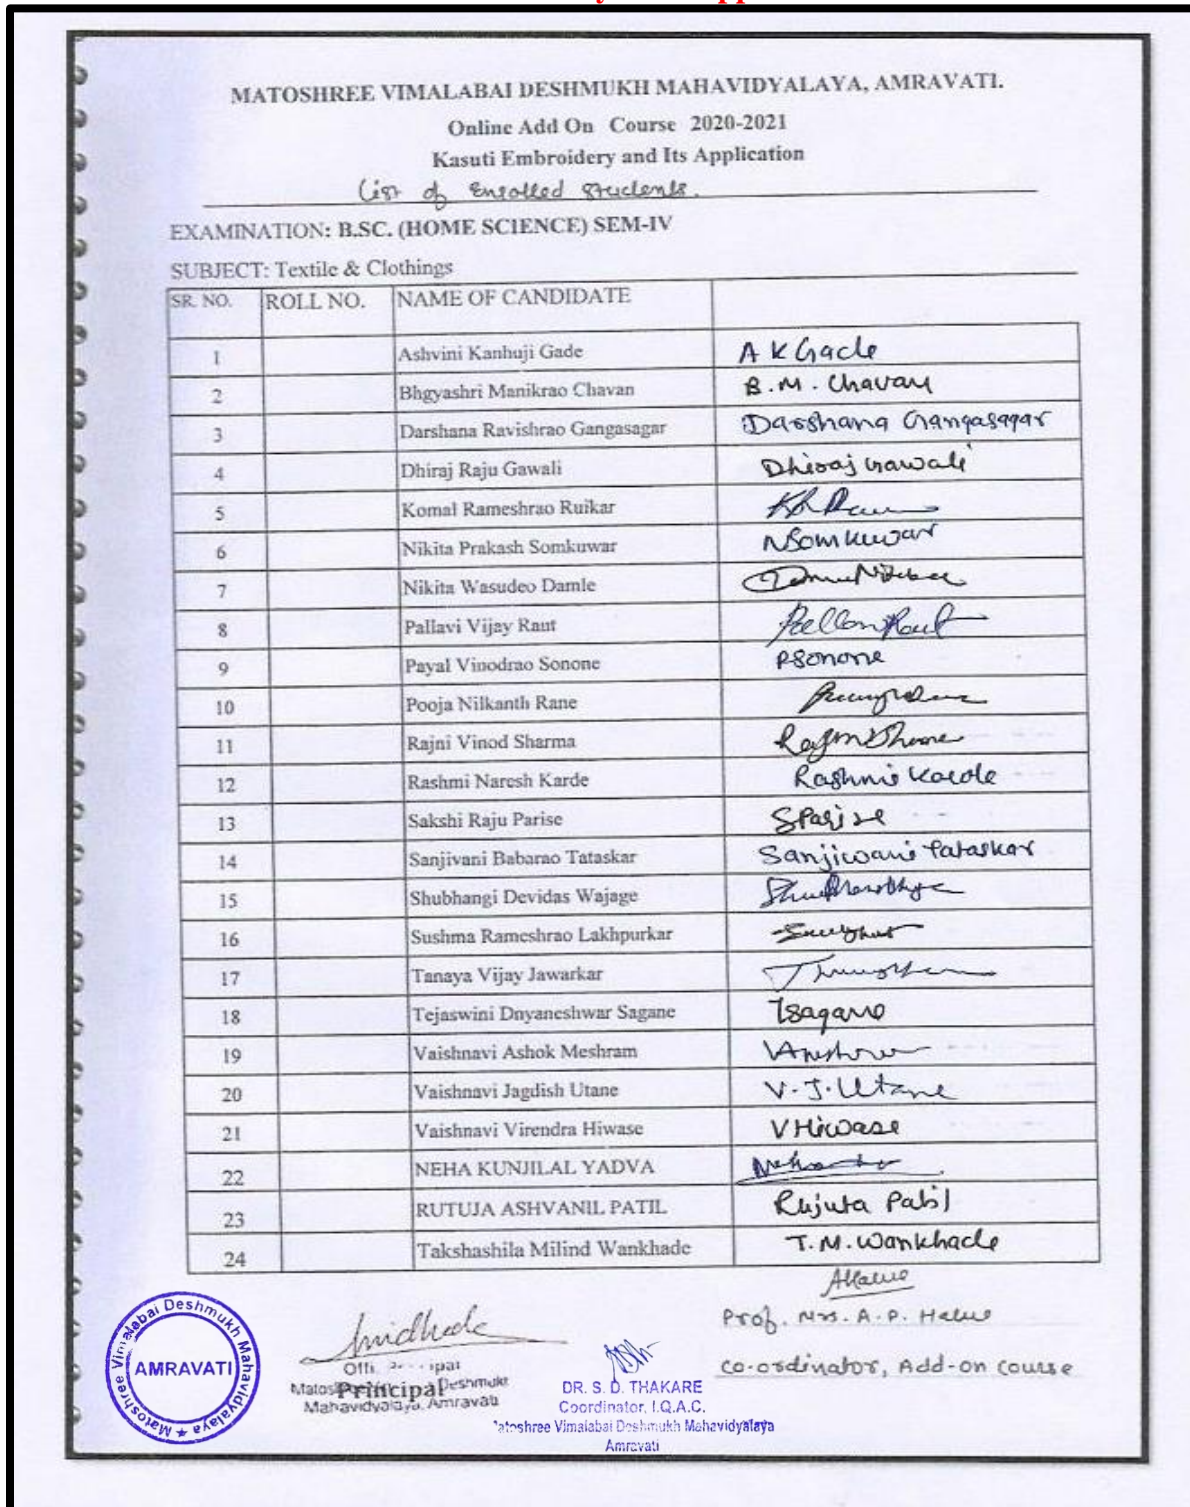 MATOSHREE VIMALABAI DESHMUKH MAHAVIDYALAYA, AMRAVATI.
Online Add On Course 2020-2021
Kasuti Embroidery and Its Application
List of Enrolled Students.
EXAMINATION: B.SC. (HOME SCIENCE) SEM-IV
SUBJECT: Textile & Clothings
SR. NO. ROLL NO. NAME OF CANDIDATE
1 Ashvini Kanhuji Gade A K Gade
2 Bhgyashri Manikrao Chavan B.M. Chavan
3 Darshana Ravishrao Gangasagar Darshana Gangasagar
4 Dhiraj Raju Gawali Dhiraj Gawali
5 Komal Rameshrao Ruikar
6 Nikita Prakash Somkuwar NSomkuwar
7 Nikita Wasudeo Damle
8 Pallavi Vijay Raut Pallavi Raut
9 Payal Vinodrao Sonone PSonone
10 Pooja Nilkanth Rane
11 Rajni Vinod Sharma
12 Rashmi Naresh Karde Rashmi Karde
13 Sakshi Raju Parise SParise
14 Sanjivani Babarao Tataskar Sanjiwani Tataskar
15 Shubhangi Devidas Wajage
16 Sushma Rameshrao Lakhpurkar
17 Tanaya Vijay Jawarkar
18 Tejaswini Dnyaneshwar Sagane TSagane
19 Vaishnavi Ashok Meshram
20 Vaishnavi Jagdish Utane V.J.Utane
21 Vaishnavi Virendra Hiwase VHiwase
22 NEHA KUNJILAL YADVA
23 RUTUJA ASHVANIL PATIL Rujuta Patil
24 Takshashila Milind Wankhade T.M.Wankhade
Prof. Mrs. A.P.
Co-ordinator, Add-on Course
Matoshree Vimalabai Deshmukh Mahavidyalaya
AMRAVATI
Principal
Deshmukh
Mahavidyalaya, Amravati
DR. S. D. THAKARE
Coordinator, I.Q.A.C.
Matoshree Vimalabai Deshmukh Mahavidyalaya
Amravati